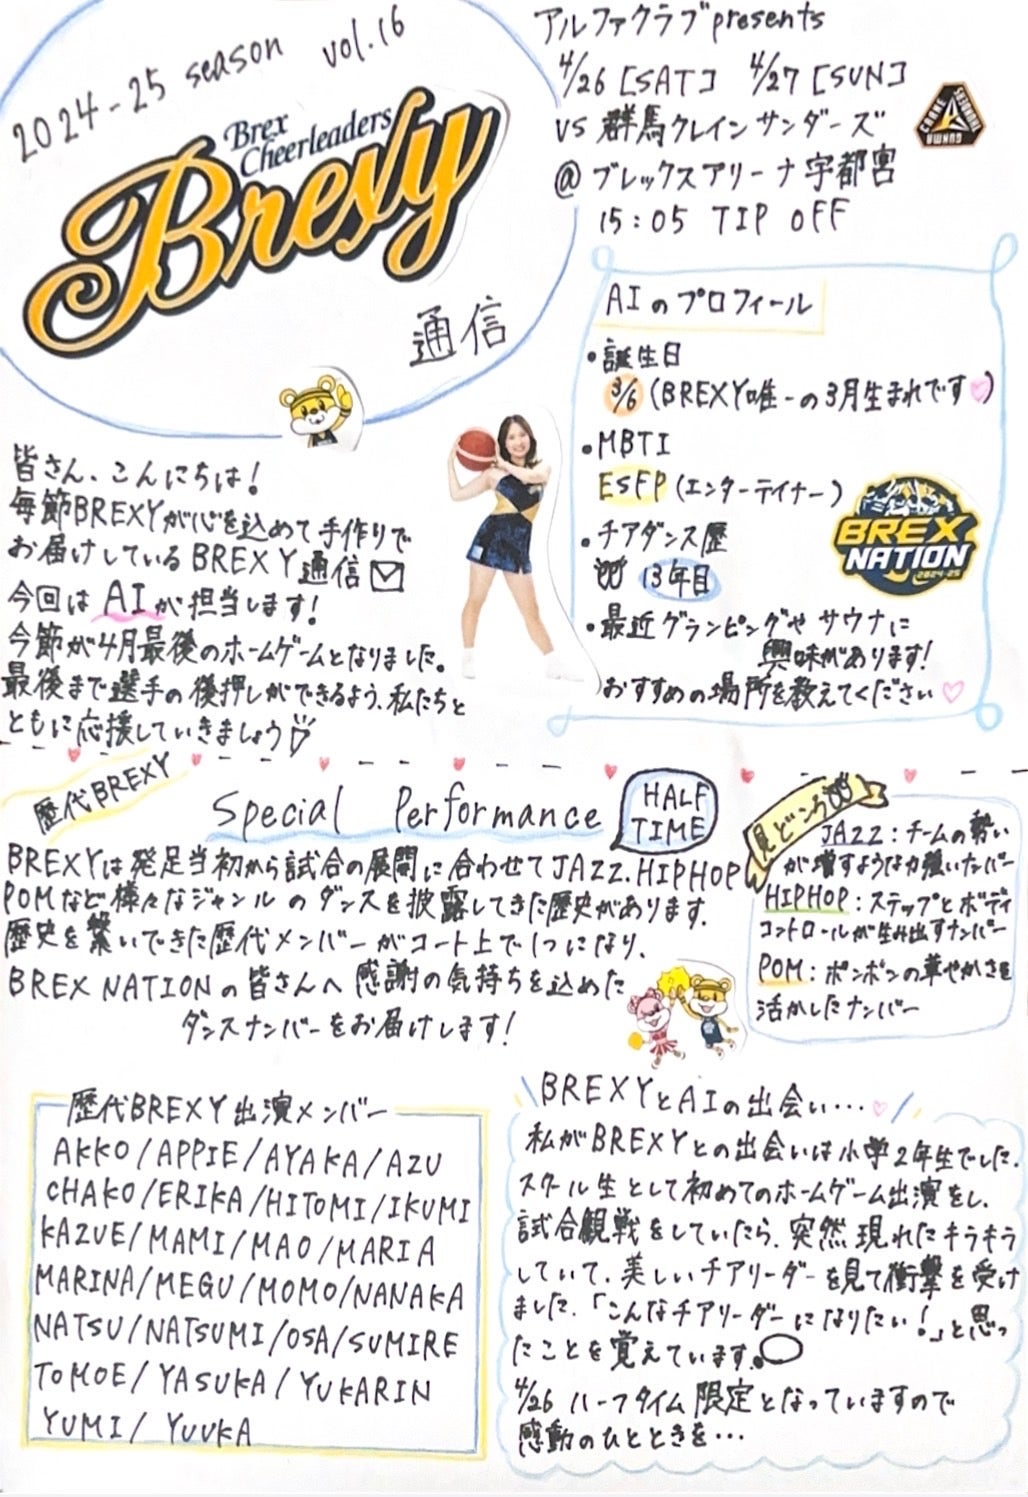 2024-25 season vol.16
Brex
Cheerleaders
Brexy
通信
アルファクラブpresents
4/26 [SAT] 4/27 [SUN]
VS 群馬クレインサンダーズ
@ ブレックスアリーナ宇都宮
15:05 TIP OFF
AIのプロフィール
・誕生日
3/6 (BREXY唯一の3月生まれです♡)
・MBTI
ESFP (エンターテイナー)
・チアダンス歴
13年目
・最近グランピングやサウナに
興味があります!
おすすめの場所を教えてください♡
BREX
NATION
2024-25
皆さん、こんにちは!
毎節BREXYが心を込めて手作りで
お届けしているBREXY通信
今回はAIが担当します!
今節が4月最後のホームゲームとなりました。
最後まで選手の後押しができるよう、私たちと
ともに応援していきましょう
歴代BREXY
Special Performance
HALF
TIME
BREXYは発足当初から試合の展開に合わせてJAZZ.HIPHOP
POMなど様々なジャンルのダンスを披露してきた歴史があります.
歴史を繋いできた歴代メンバーがコート上で1つになり、
BREX NATIONの皆さんへ感謝の気持ちを込めた
ダンスナンバーをお届けします!
見どころ
JAZZ:チームの勢い
が増すような力強いナンバー
HIPHOP:ステップとボディ
コントロールが生み出すナンバー
POM:ポンポンの華やかさを
活かしたナンバー
歴代BREXY出演メンバー
AKKO/APPIE/AYAKA/AZU
CHAKO/ERIKA/HITOMI/IKUMI
KAZUE/MAMI/MAO/MARIA
MARINA/MEGU/MOMO/NANAKA
NATSU/NATSUMI/OSA/SUMIRE
TOMOE/YASUKA/YUKARIN
YUMI/YUUKA
BREXYとAIの出会い...♡
私がBREXYとの出会いは小学2年生でした.
スクール生として初めてのホームゲーム出演をし、
試合観戦をしていたら、突然現れたキラキラ
していて、美しいチアリーダーを見て衝撃を受け
ました.「こんなチアリーダーになりたい!」と思っ
たことを覚えています.
4/26 ハーフタイム限定となっていますので
感動のひとときを...